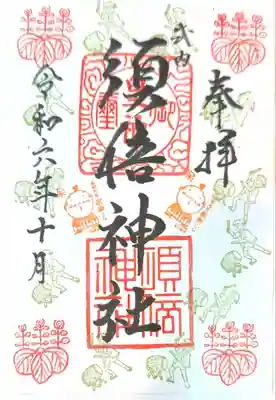 奉拝
式内
須倍神社
須倍
神社
令和六年十月